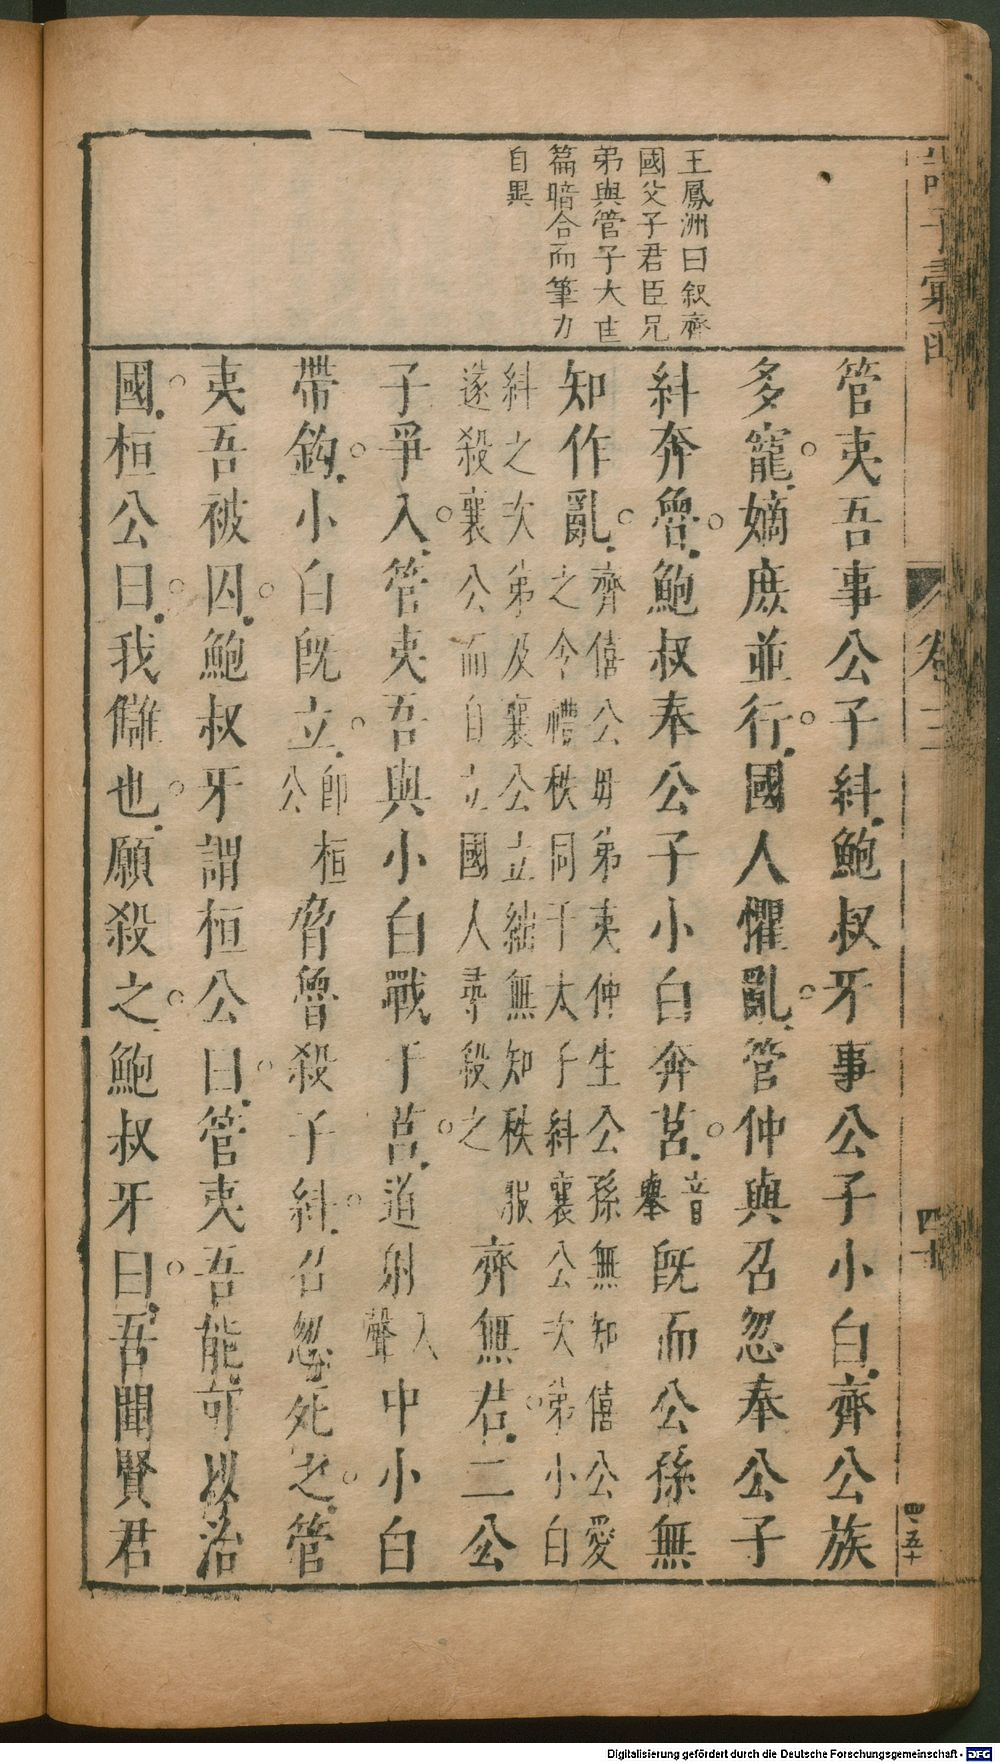 諸子彙函
卷三
四十
四、五十
王鳳洲曰叙齊
國父子君臣兄
弟與管子大匡
篇暗合而筆力
自異
管夷吾事公子糾鮑叔牙事公子小白齊公族
多寵嫡庶並行國人懼亂管仲與召忽奉公子
糾奔魯鮑叔奉公子小白奔莒音舉既而公孫無
知作亂齊僖公母弟夷仲生公孫無知僖公愛之令禮秩同于太子糾襄公次弟小白
糾之次弟及襄公立絀無知秩服遂殺襄公而自立國人尋殺之齊無君二公
子爭入管夷吾與小白戰于莒道射入聲中小白
帶鈎小白既立即桓公脅魯殺子糾召忽死之管
夷吾被囚鮑叔牙謂桓公曰管夷吾能可以治
國桓公曰我讎也願殺之鮑叔牙曰吾聞賢君
Digitalisierung gefördert durch die Deutsche Forschungsgemeinschaft - DFG